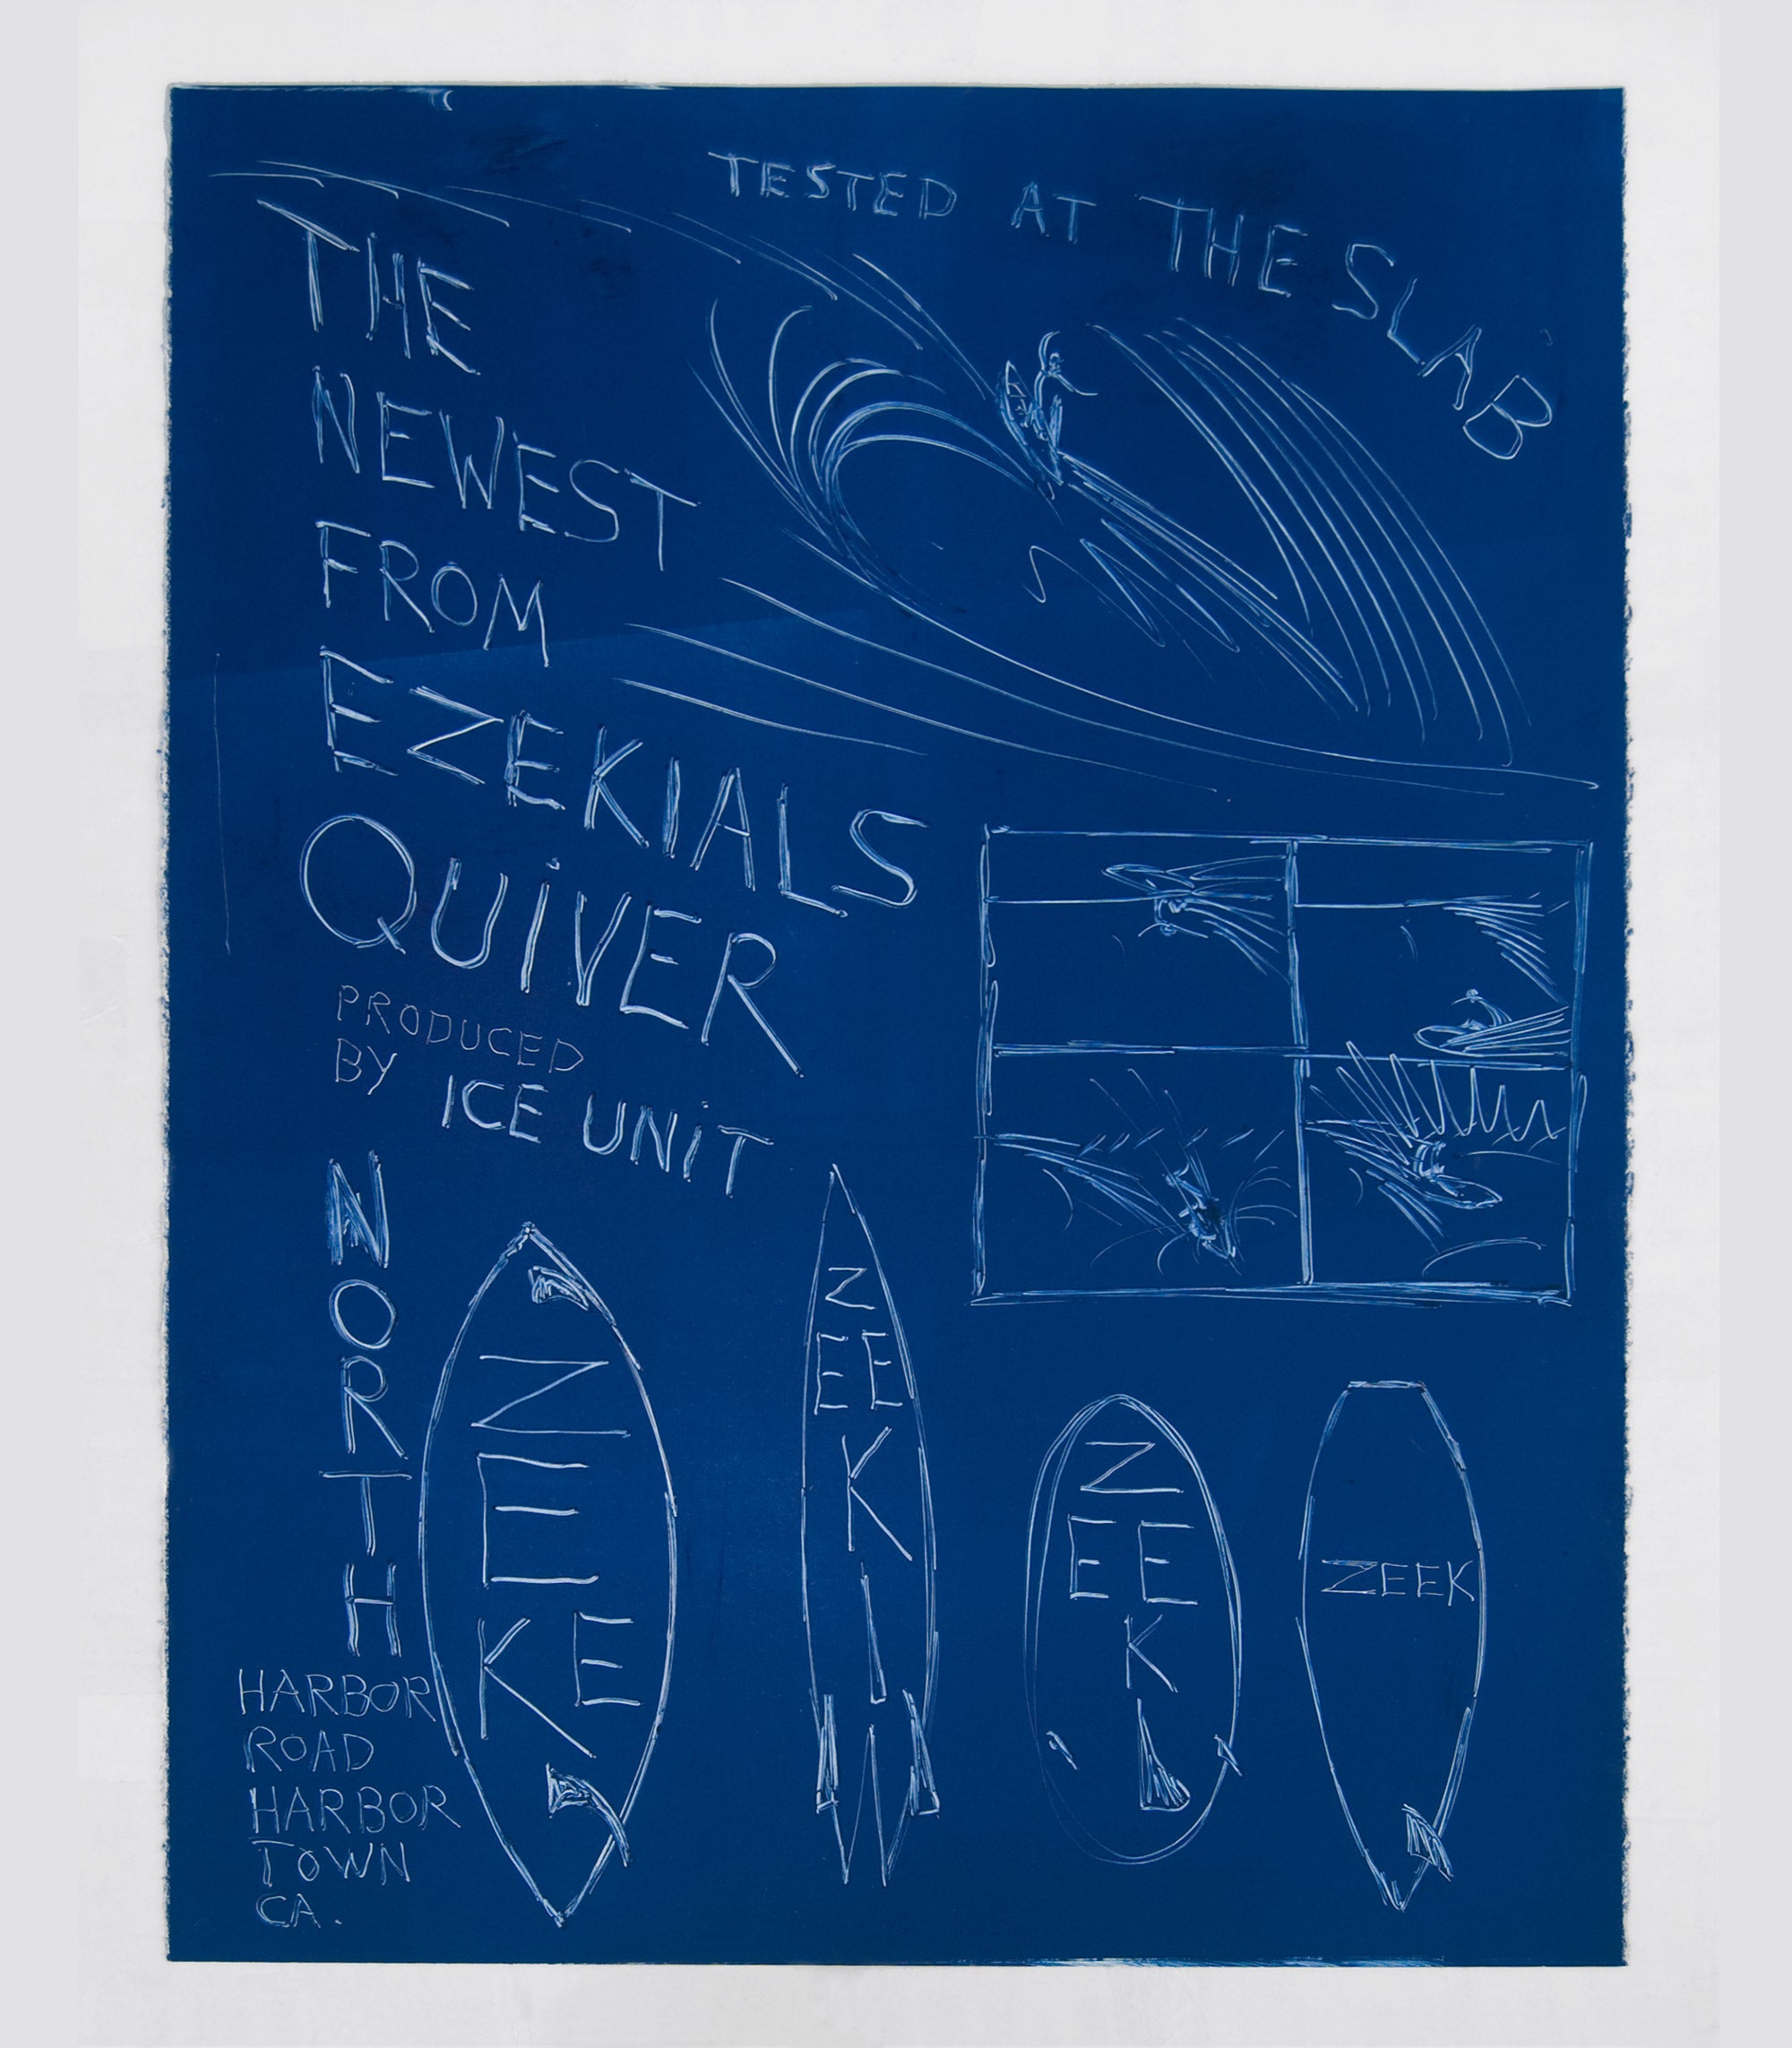 TESTED AT THE SLAB
THE
NEWEST
FROM
EZEKIALS
QUIVER
PRODUCED
BY ICE UNIT
NORTH
HARBOR
ROAD
HARBOR
TOWN
CA.
Z
E
KE
Z
EE
K
Z
EE
K
ZEEK